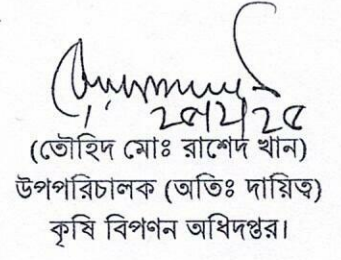 (তৌহিদ মোঃ রাশেদ খান)
উপপরিচালক (অতিঃ দায়িত্ব)
কৃষি বিপণন অধিদপ্তর।